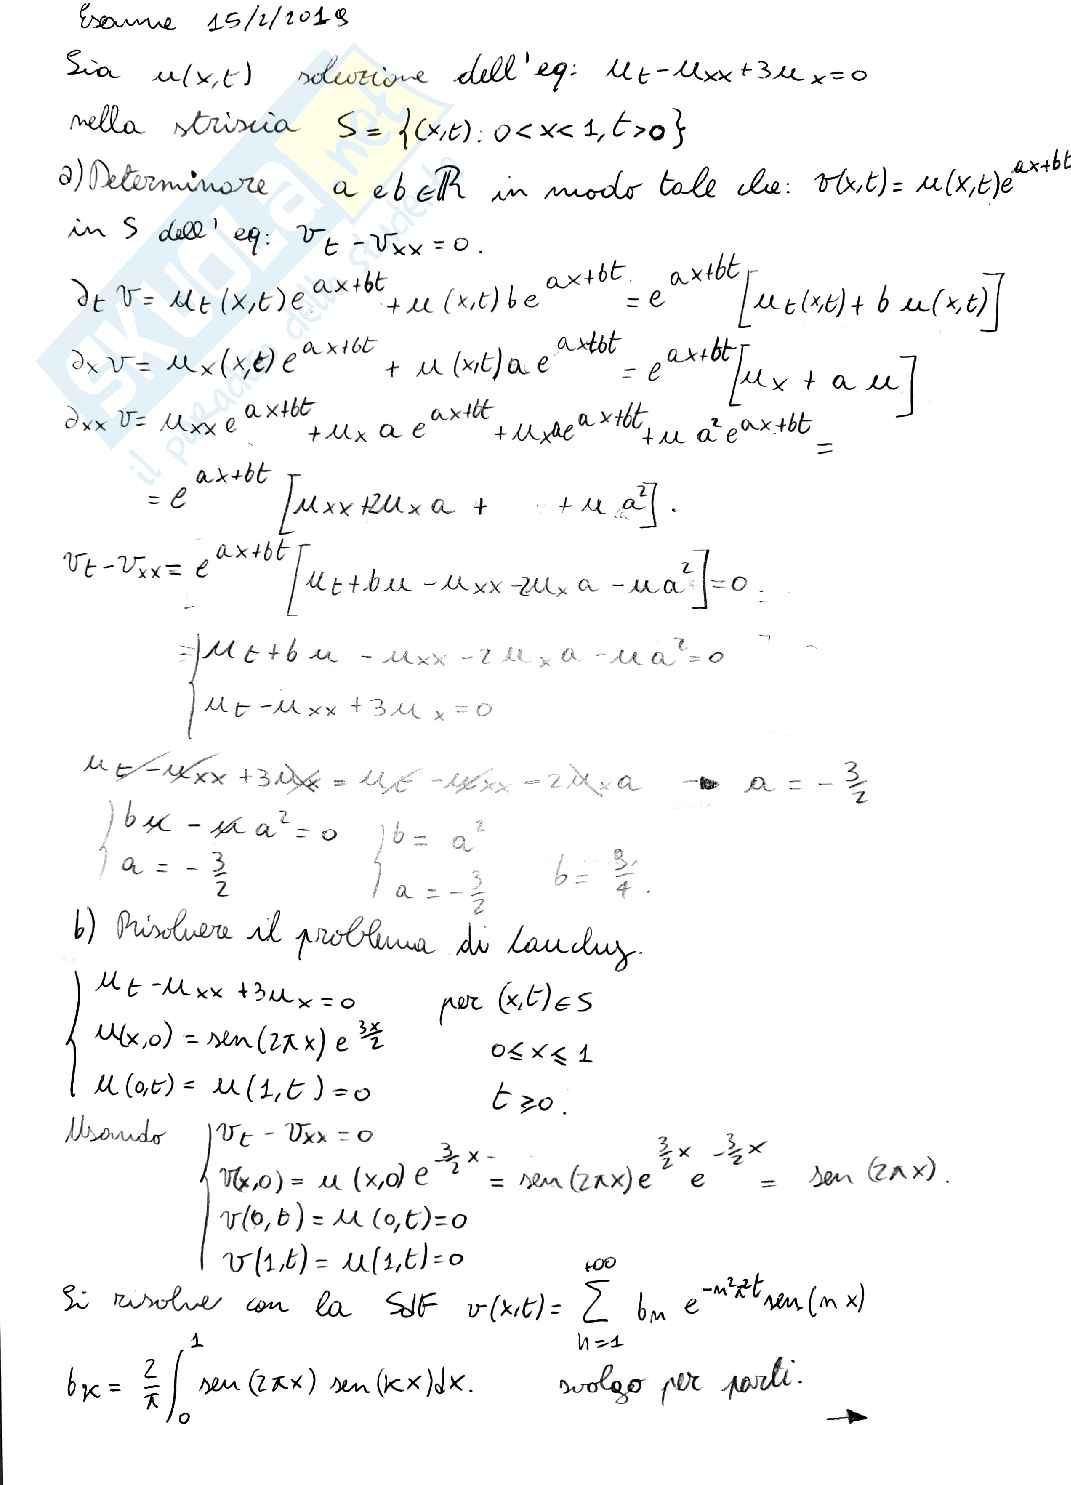 Esame 15/2/2019
Sia u(x,t) soluzione dell'eq: u_t - u_xx + 3u_x = 0
nella striscia S = {(x,t): 0 < x < 1, t > 0}
a) Determinare a e b ∈ ℝ in modo tale che: v(x,t) = u(x,t)e^{ax+bt}
in S dell'eq: v_t - v_xx = 0.
∂_t v = u_t(x,t)e^{ax+bt} + u(x,t)b e^{ax+bt} = e^{ax+bt}[u_t(x,t) + b u(x,t)]
∂_x v = u_x(x,t)e^{ax+bt} + u(x,t)a e^{ax+bt} = e^{ax+bt}[u_x + a u]
∂_xx v = u_xx e^{ax+bt} + u_x a e^{ax+bt} + u_x a e^{ax+bt} + u a² e^{ax+bt} =
= e^{ax+bt}[u_xx + 2u_x a + + u a²].
v_t - v_xx = e^{ax+bt}[u_t + bu - u_xx - 2u_x a - u a²] = 0
= { u_t + b u - u_xx - 2u_x a - u a² = 0
u_t - u_xx + 3u_x = 0
u_t - u_xx + 3u_x = u_t - u_xx - 2u_x a → a = -3/2
{ bu - u a² = 0 { b = a²
a = -3/2 a = -3/2 b = 9/4.
b) Risolvere il problema di Cauchy.
{ u_t - u_xx + 3u_x = 0 per (x,t) ∈ S
u(x,0) = sen(2πx) e^{3x/2} 0 ≤ x ≤ 1
u(0,t) = u(1,t) = 0 t ≥ 0.
Usando { v_t - v_xx = 0
v(x,0) = u(x,0) e^{-3/2 x} = sen(2πx) e^{3/2 x} e^{-3/2 x} = sen(2πx).
v(0,t) = u(0,t) = 0
v(1,t) = u(1,t) = 0
Si risolve con la SdF v(x,t) = ∑_{n=1}^{+∞} b_n e^{-n²π²t} sen(nx)
b_k = 2/π ∫_0^1 sen(2πx) sen(kx)dx. svolgo per parti.
→
SKUOLA.net
il paradiso dello studente